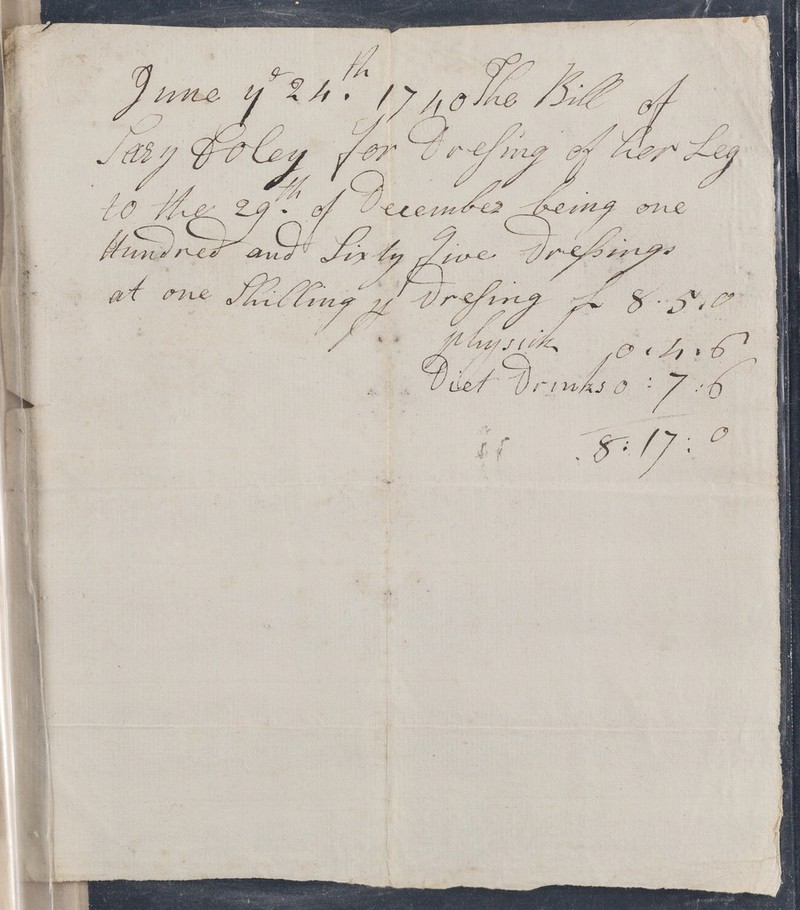 June ye 24.th 1740 The Bill of
Sary Foley for Dresing of her Leg
to the 29.th of December being one
Hundred and Sixty five Dressings
at one Shilling pr Dresing £ 8:5:0
physick 0:4:6
Diet Drinks 0:7:6
8:17:0